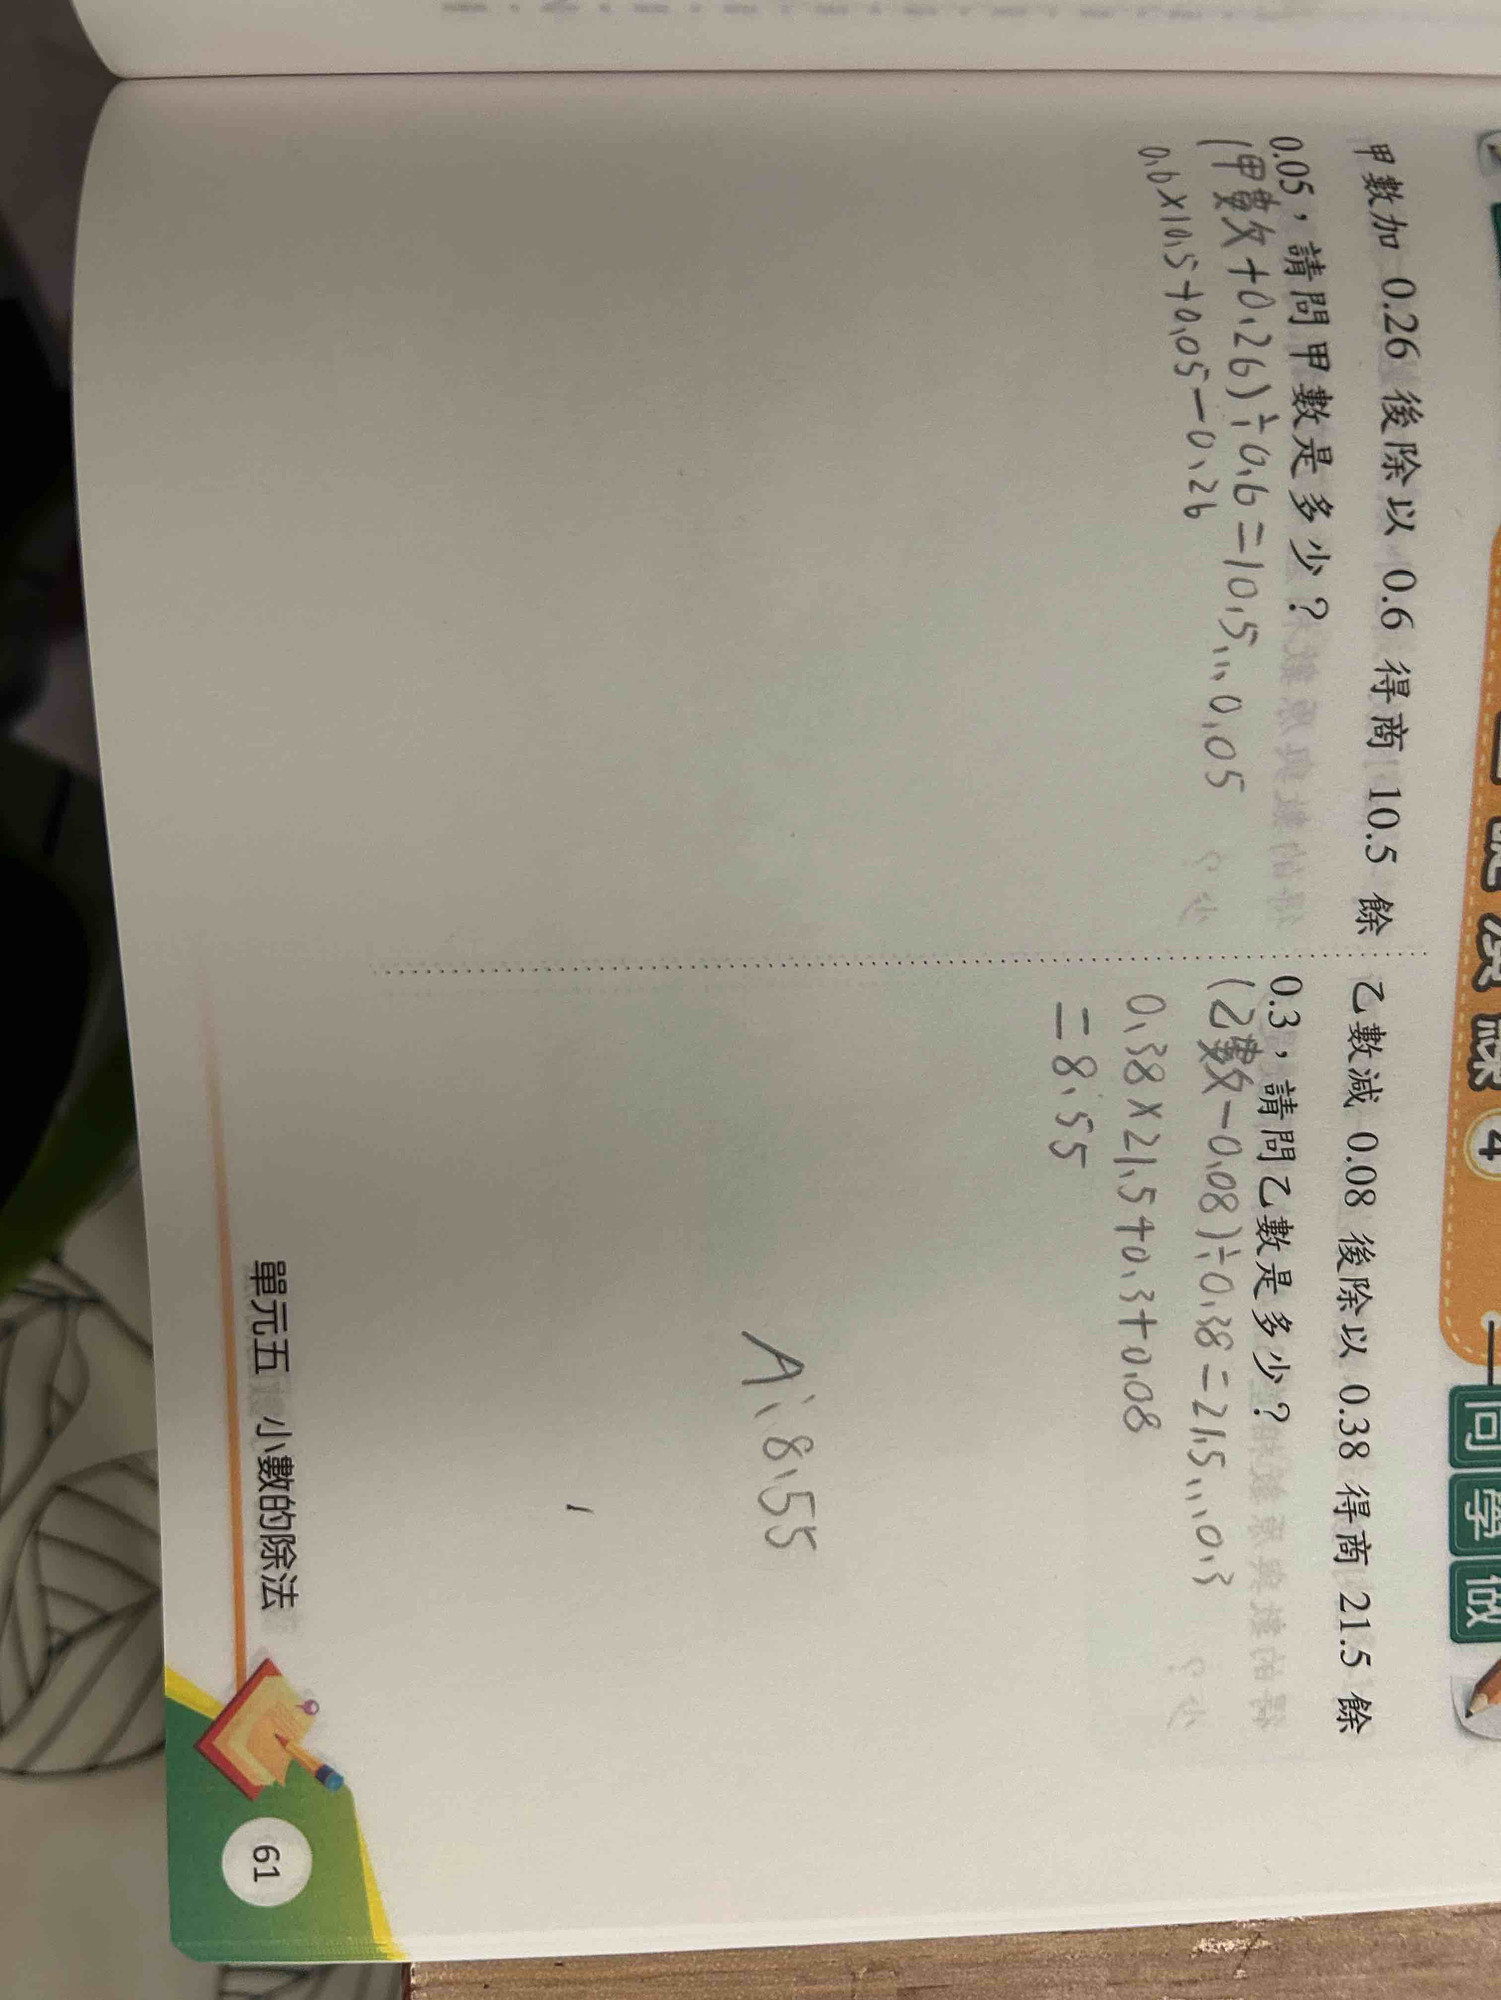 4
問 學 做
甲數加 0.26 後除以 0.6 得商 10.5 餘
0.05，請問甲數是多少？
(甲數+0.26)÷0.6=10.5...0.05
0.6×10.5+0.05-0.26
乙數減 0.08 後除以 0.38 得商 21.5 餘
0.3，請問乙數是多少？
(乙數-0.08)÷0.38=21.5...0.3
0.38×21.5+0.3+0.08
=8.55
A:8.55
單元五 小數的除法
61